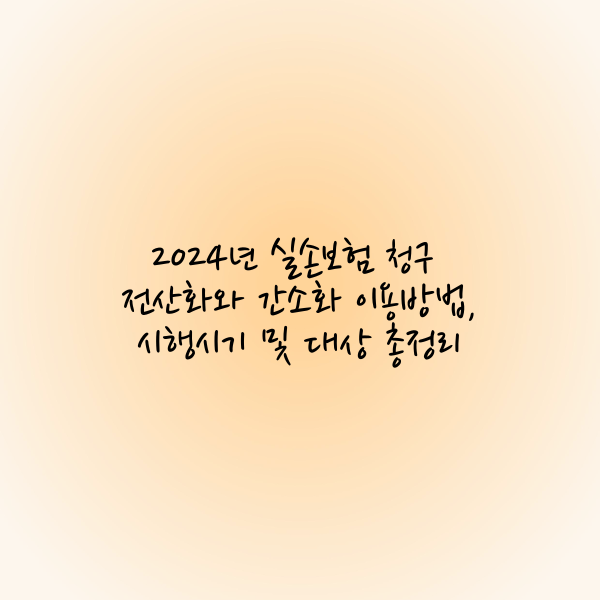 2024년 실손보험 청구
전산화와 간소화 이용방법,
시행시기 및 대상 총정리